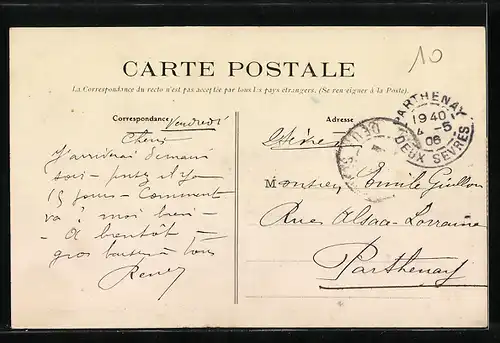 10
CARTE POSTALE
La Correspondance du recto n'est pas acceptée par tous les pays étrangers. (Se renseigner à la Poste).
Correspondance Vendredi
Adresse
PARTHENAY
19 40
4 -5
06
DEUX SEVRES
DEUX
Chers
J'arriverai demain
soir
15 jours - Comment
va? moi bien -
A bientôt -
gros baisers à tous
René
Monsieur Emile Guillon
Rue Alsace-Lorraine
Parthenay